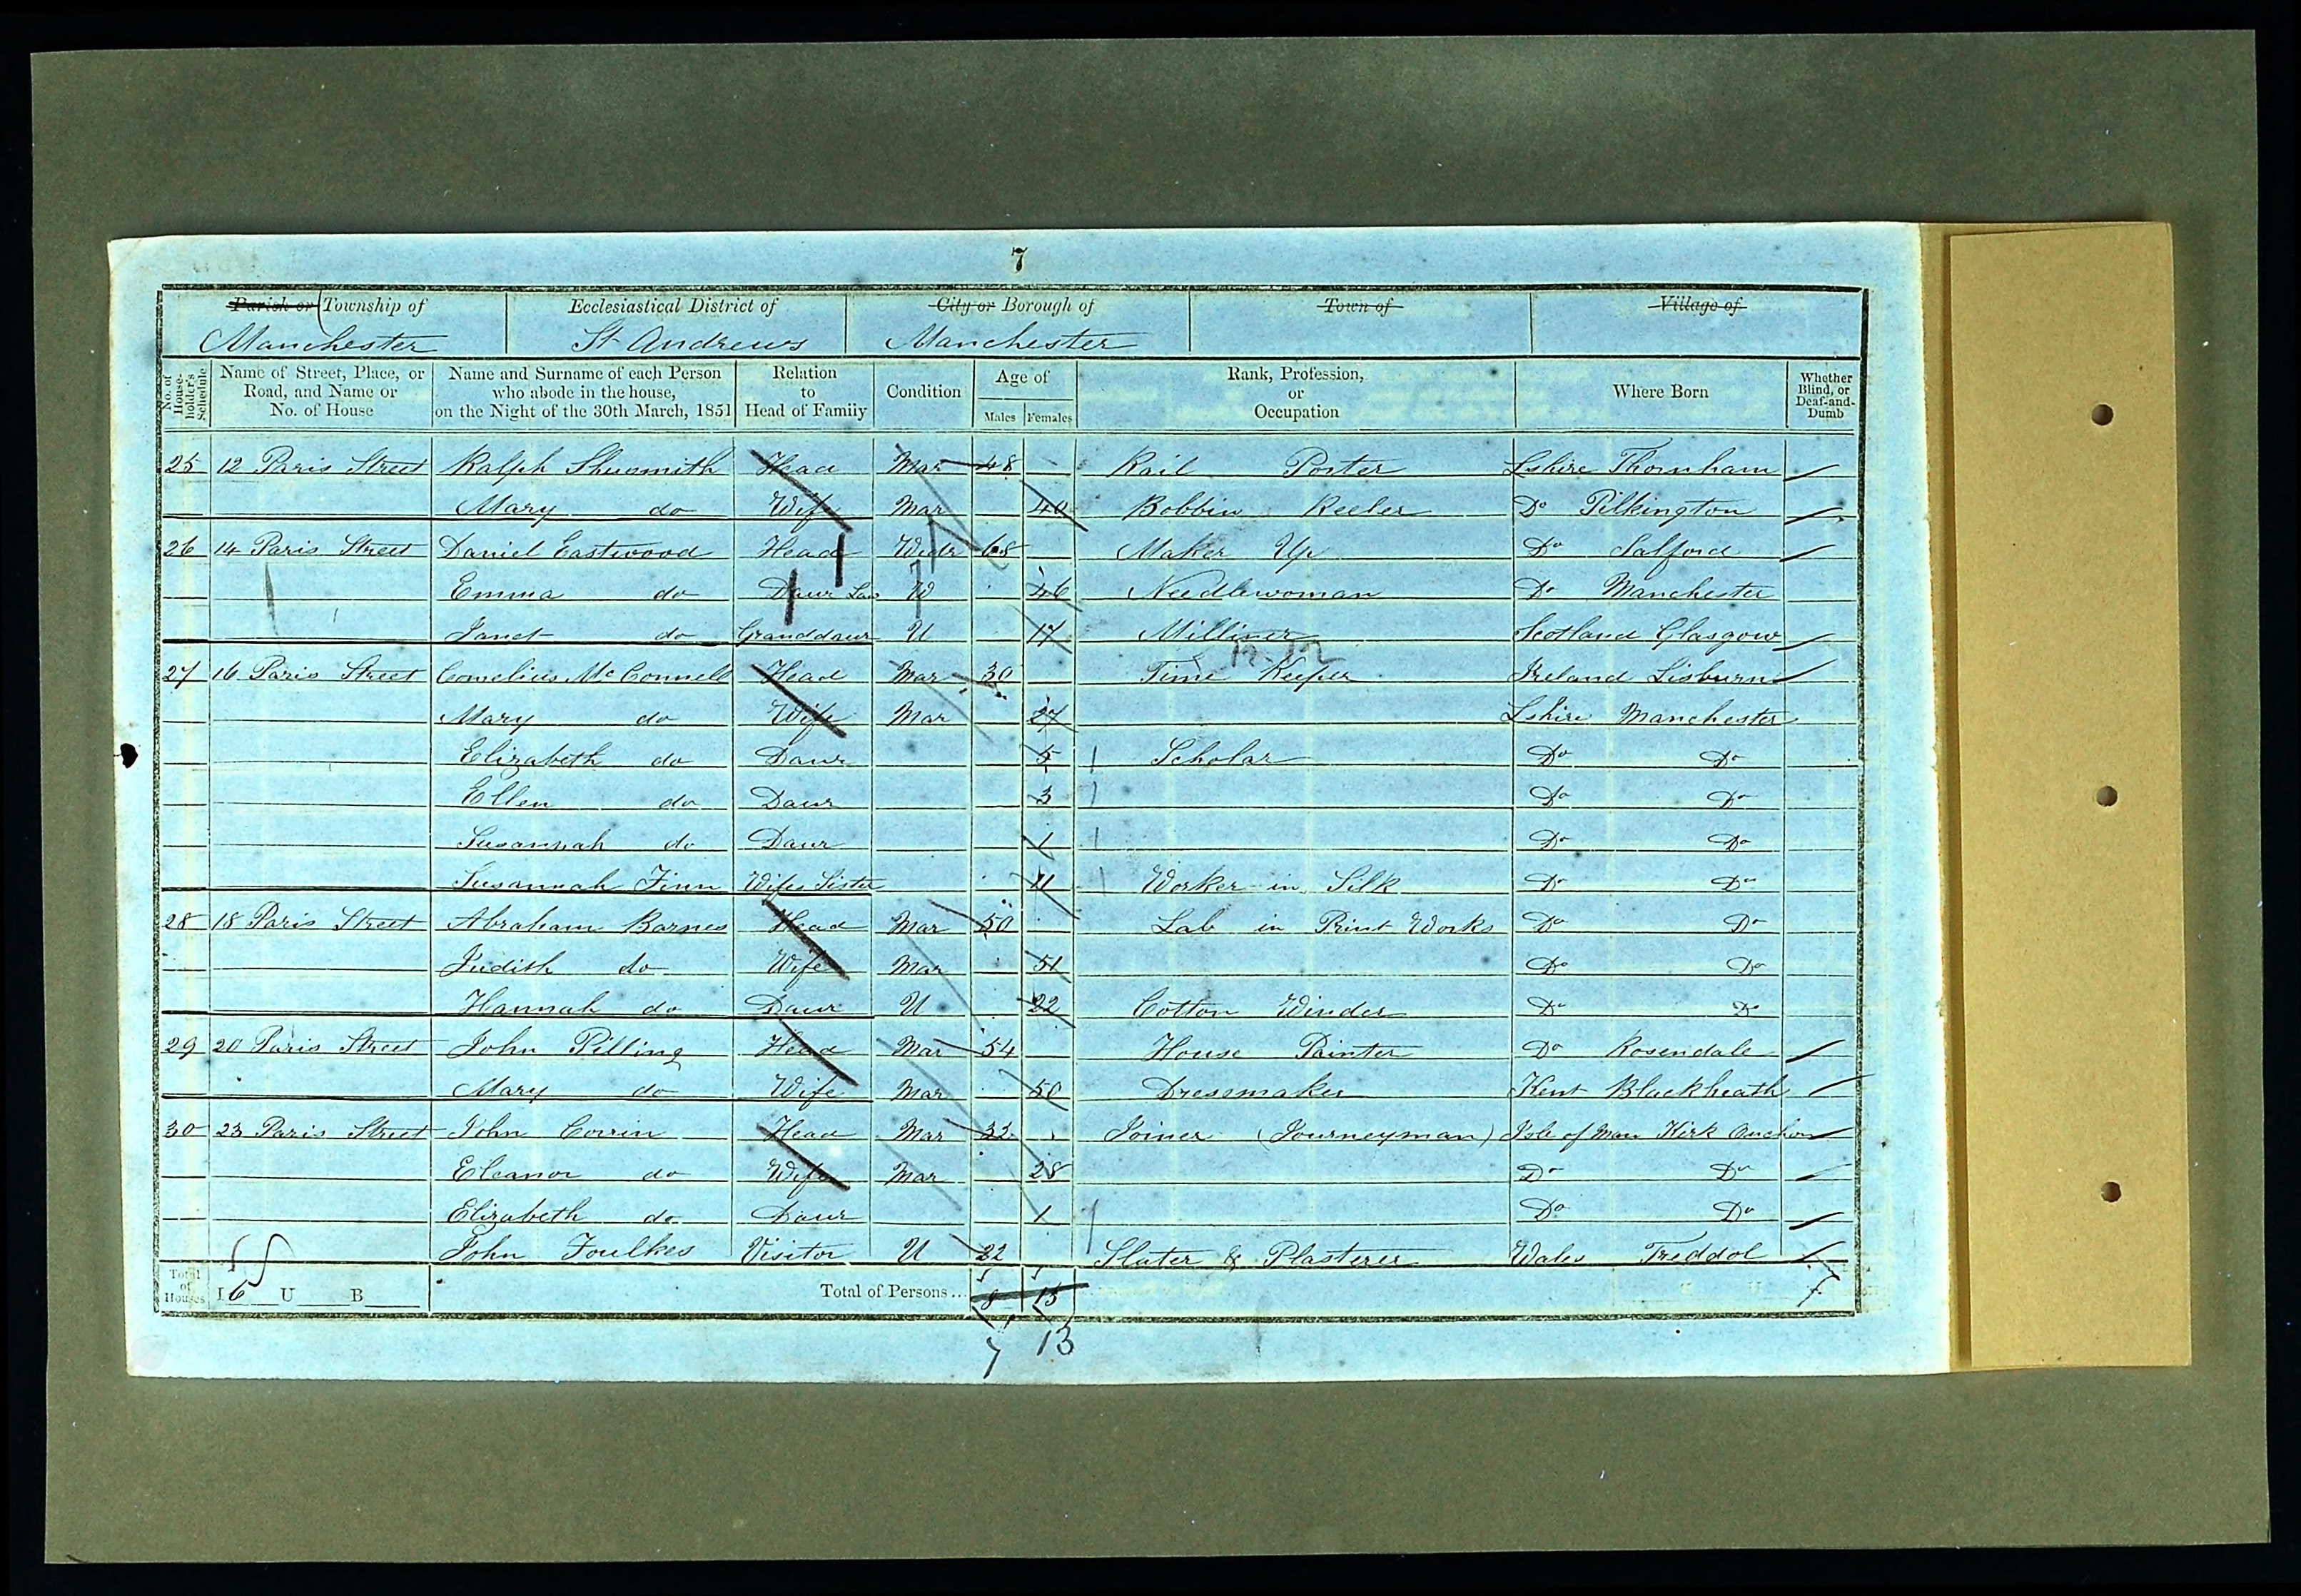 7
Parish or Township of Ecclesiastical District of City or Borough of Town of Village of
Manchester St Andrews Manchester
No. of House-holder's Schedule Name of Street, Place, or Road, and Name or No. of House Name and Surname of each Person who abode in the house, on the Night of the 30th March, 1851 Relation to Head of Family Condition Age of Males Females Rank, Profession, or Occupation Where Born Whether Blind, or Deaf-and-Dumb
25 12 Paris Street Ralph Shusmith Head Mar 48 Rail Porter Lshire Thornham
Mary do Wife Mar 40 Bobbin Reeler Do Pilkington
26 14 Paris Street Daniel Eastwood Head Widr 68 Maker Up Do Salford
Emma do Daur Law W 46 Needlewoman Do Manchester
Janet do Granddaur U 17 Milliner Scotland Glasgow
27 16 Paris Street Cornelius McConnell Head Mar 30 Time Keeper Ireland Lisburn
Mary do Wife Mar 27 Lshire Manchester
Elizabeth do Daur 5 Scholar Do Do
Ellen do Daur 3 Do Do
Susannah do Daur 1 Do Do
Susannah Finn Wifes Sister 11 Worker in Silk Do Do
28 18 Paris Street Abraham Barnes Head Mar 50 Lab in Print Works Do Do
Judith do Wife Mar 51 Do Do
Hannah do Daur U 22 Cotton Winder Do Do
29 20 Paris Street John Pilling Head Mar 54 House Painter Do Rosendale
Mary do Wife Mar 50 Dressmaker Kent Blackheath
30 23 Paris Street John Corrin Head Mar 32 Joiner (Journeyman) Isle of Man Kirk Onchan
Eleanor do Wife Mar 28 Do Do
Elizabeth do Daur 1 Do Do
John Foulkes Visitor U 22 Slater & Plasterer Wales Treddol
Total of Houses I 6 U B Total of Persons... 8 15
7 13